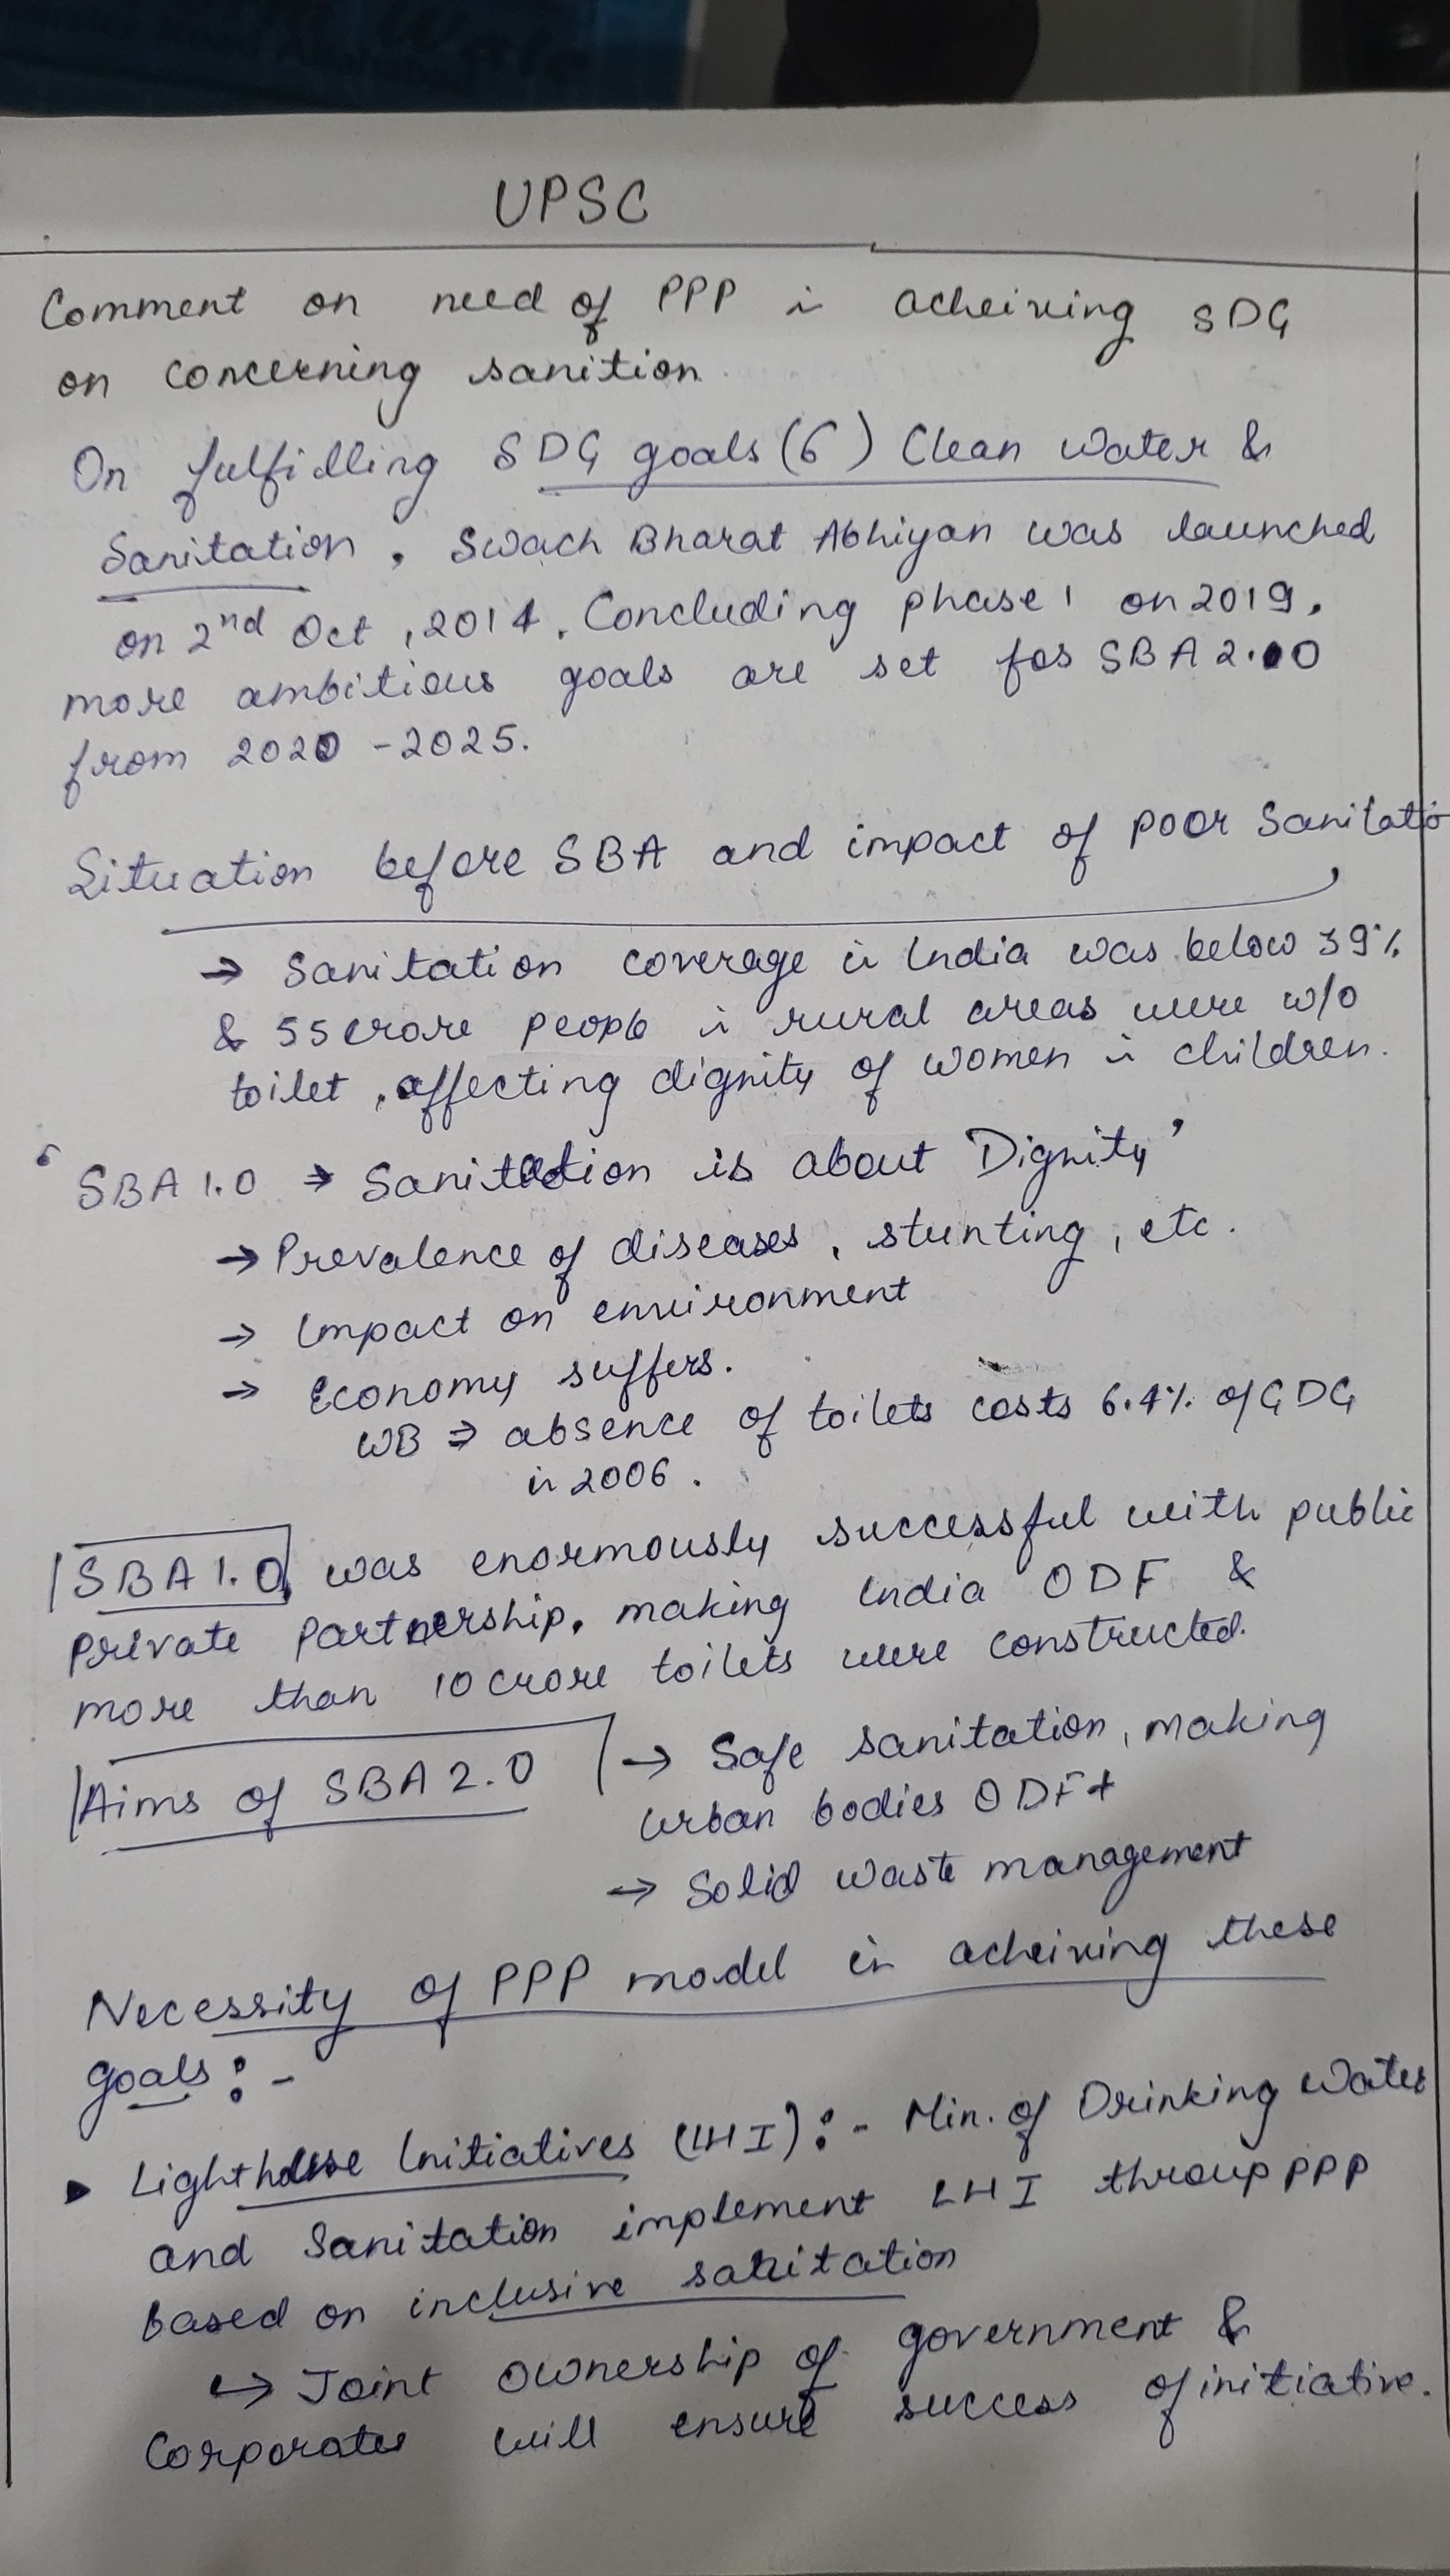 UPSC
Comment on need of PPP in acheiving SDG
on concerning sanition.
On fulfilling SDG goals (6) Clean Water &
Sanitation, Swach Bharat Abhiyan was launched
on 2nd Oct, 2014. Concluding phase 1 on 2019,
more ambitious goals are set for SBA 2.0
from 2020 - 2025.
Situation before SBA and impact of poor Sanitatio
→ Sanitation coverage in India was below 39%
& 55 crore people in rural areas were w/o
toilet, affecting dignity of women in children.
SBA 1.0 ⇒ Sanitation is about 'Dignity'
→ Prevalence of diseases, stunting, etc.
→ Impact on environment
→ Economy suffers.
WB ⇒ absence of toilets costs 6.4% of GDG
in 2006.
SBA 1.0, was enormously successful with public
private partnership, making India ODF &
more than 10 crore toilets were constructed.
Aims of SBA 2.0 → Safe sanitation, making
Urban bodies ODF+
→ Solid waste management
Necessity of PPP model in acheiving these
goals :-
▸ Lighthouse Initiatives (LHI) :- Min. of Drinking Water
and Sanitation implement LHI throup PPP
based on inclusive sanitation
↪ Joint ownership of government &
Corporates will ensure success of initiative.